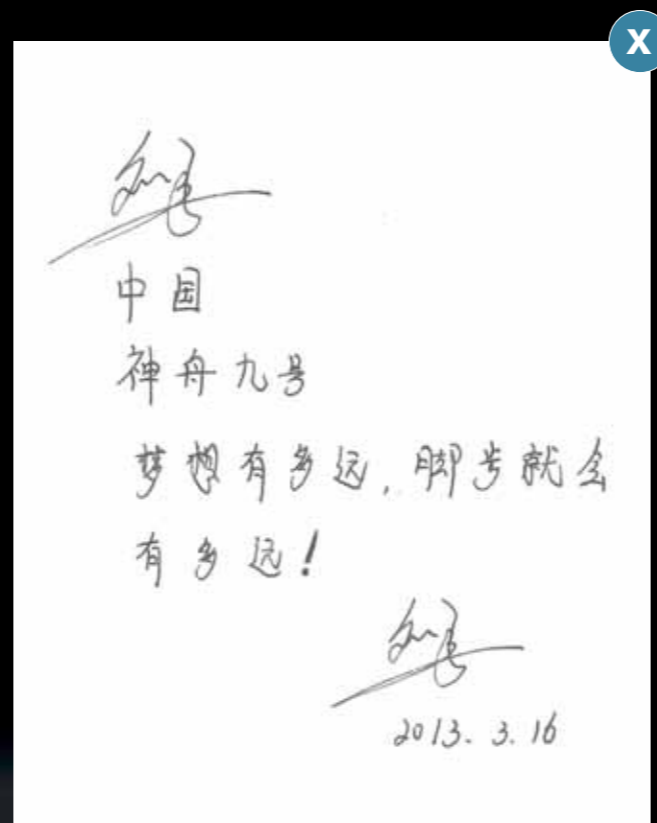 X
中国
神舟九号
梦想有多远,脚步就会
有多远!
2013.3.16